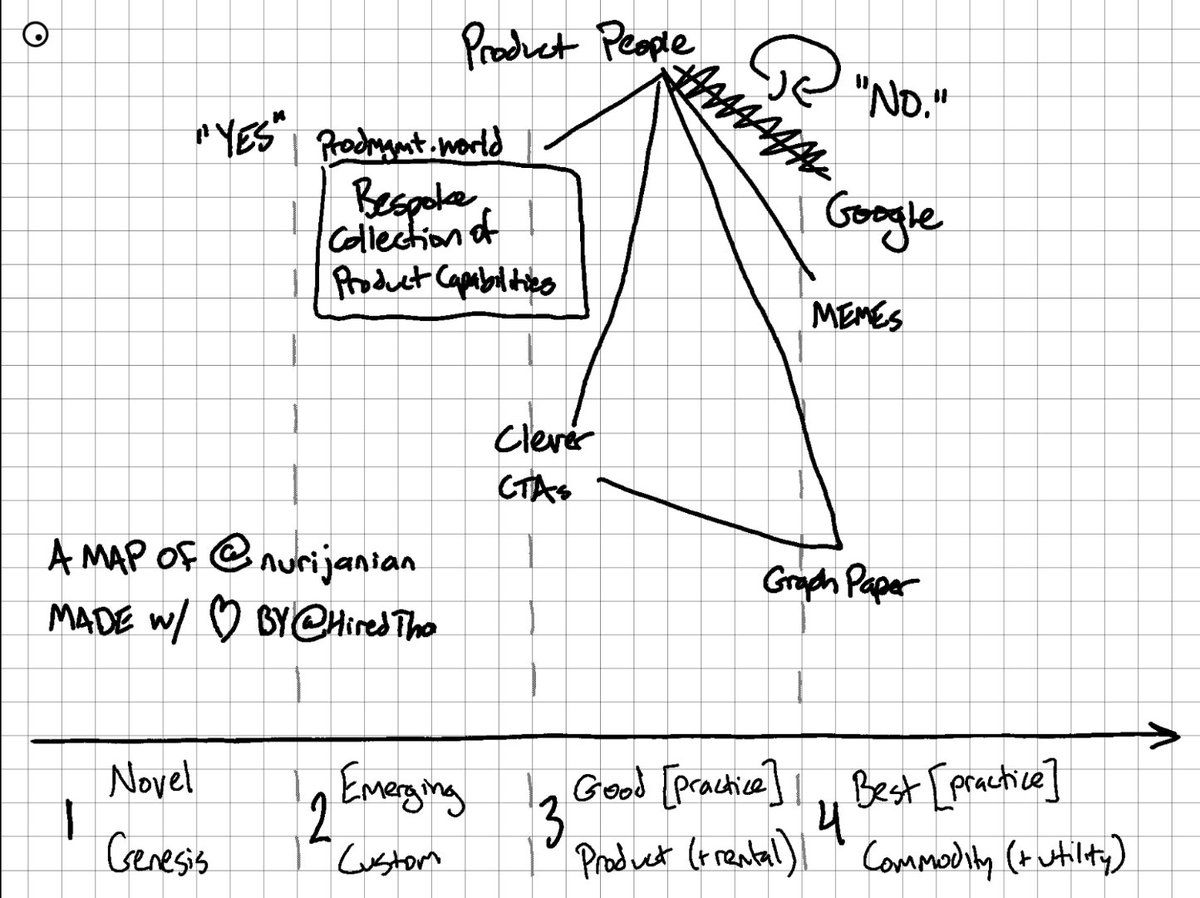 Product People
"NO."
"YES"
Prodmgmt.world
Bespoke
Collection of
Product Capabilities
Google
MEMEs
Clever
CTAs
Graph Paper
A MAP OF @nurijanian
MADE w/ ♡ BY @HiredTho
1 Novel
Genesis
2 Emerging
Custom
3 Good [practice]
Product (+rental)
4 Best [practice]
Commodity (+utility)